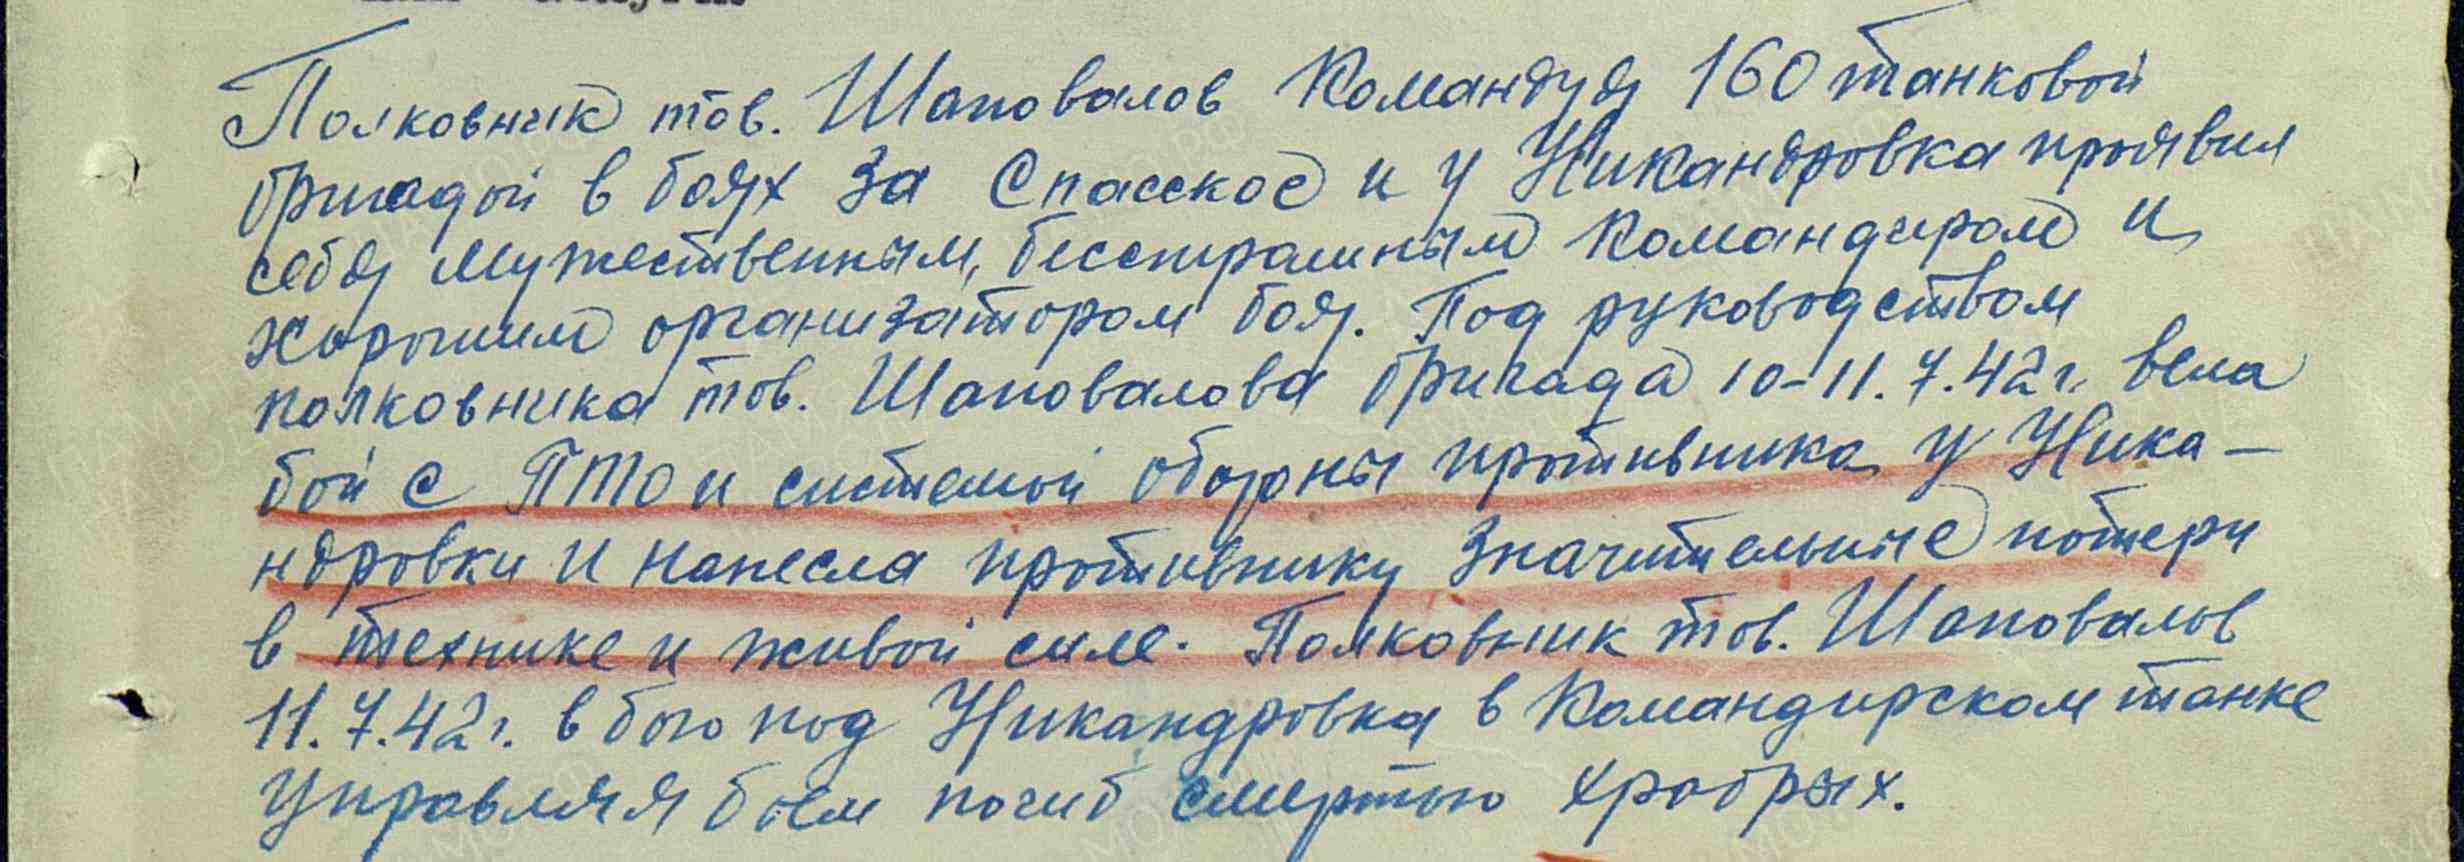 Полковник тов. Шаповалов Командуя 160 танковой
бригадой в боях за Спасское и у Никандровка проявил
себя мужественным, бесстрашным Командиром и
хорошим организатором боя. Под руководством
полковника тов. Шаповалова бригада 10-11.7.42г. вела
бой с ПТО и системой обороны противника у Ника-
ндровки и нанесла противнику значительные потери
в технике и живой силе. Полковник тов. Шаповалов
11.7.42г. в бою под Никандровка в Командирском танке
управляя боем погиб смертью храбрых.